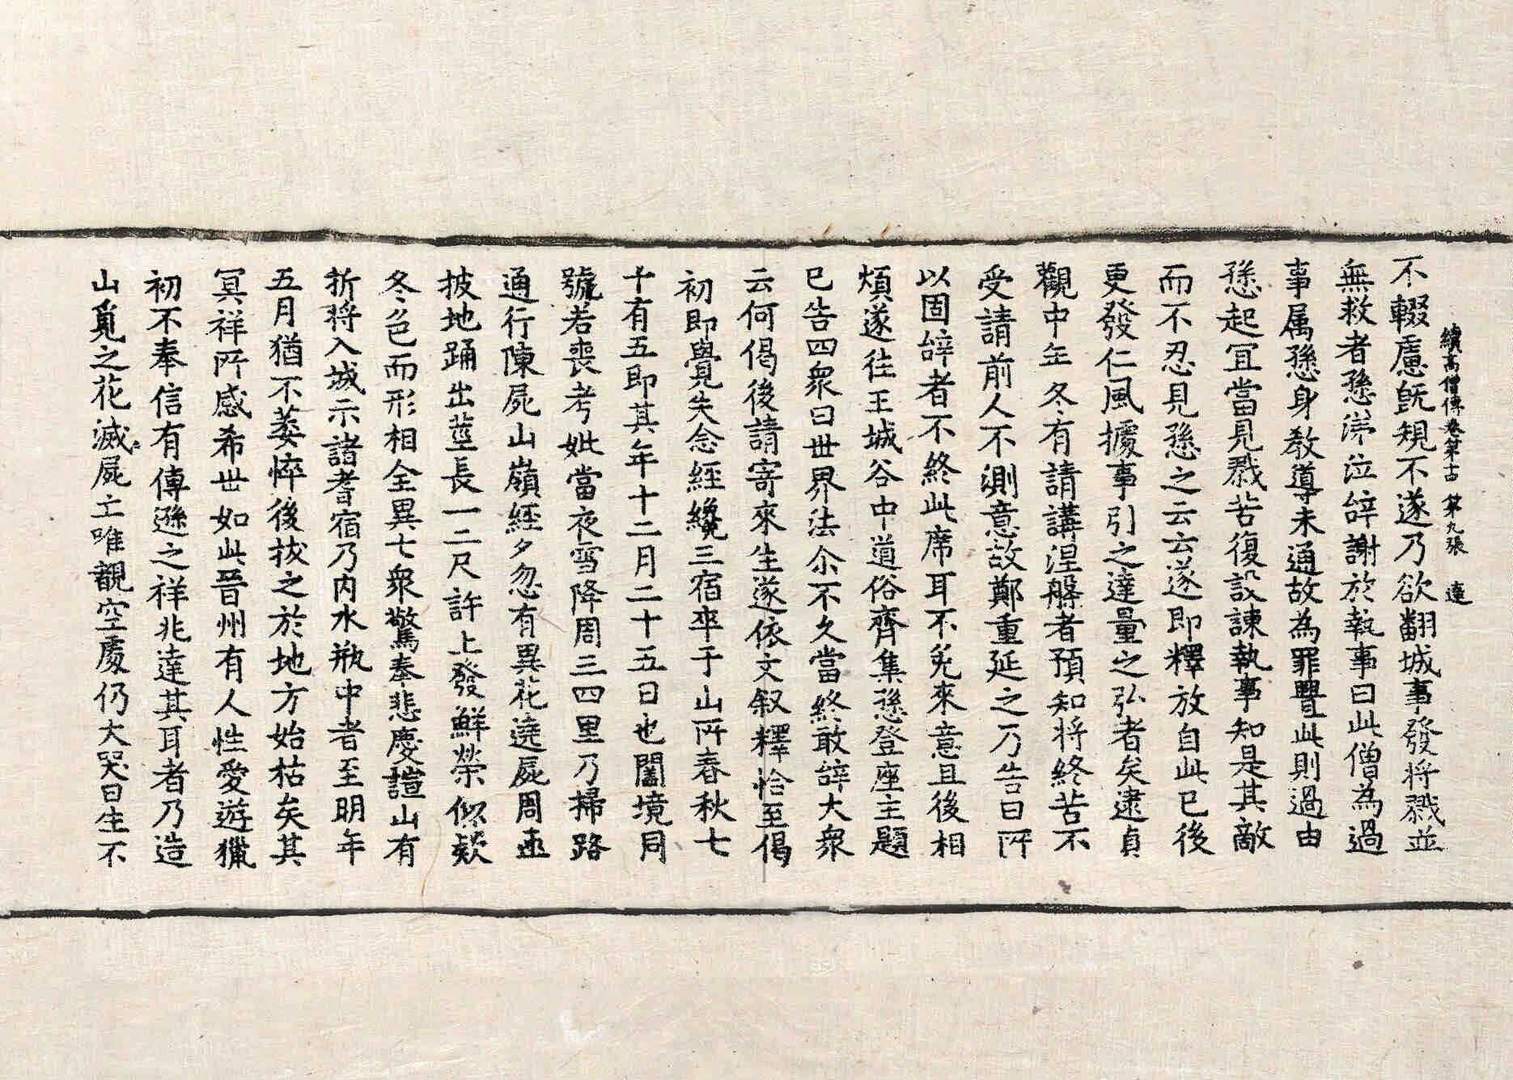 續高僧傳卷第十五 第九張 達
不輟慝旣規不遂乃欲翻城事發將戮並
無救者愻涕泣辝謝於執事曰此僧為過
事属愻身教導未通故為罪舋此則過由
愻起冝當見戮苦復設諌執事知是其敵
而不忍見愻之云云遂即釋放自此已後
更發仁風據事引之達量之弘者矣逮貞
觀中年冬有請講涅槃者預知将終苦不
受請前人不測意故鄭重延之乃告曰所
以固辝者不終此席耳不免來意且後相
煩遂往王城谷中道俗齊集愻登座主題
已告四衆曰世界法尒不久當終敢辝大衆
云何偈後請寄來生遂依文叙釋恰至偈
初即覺失念經纔三宿卒于山所春秋七
十有五即其年十二月二十五日也闔境同
號若喪考妣當夜雪降周三四里乃掃路
通行陳屍山嶺經夕忽有異花遶屍周迊
披地踊出莖長一二尺許上發鮮榮似欵
冬色而形相全異七衆驚奉悲慶諠山有
折将入城示諸耆宿乃内水瓶中者至明年
五月猶不萎悴後拔之於地方始枯矣其
冥祥所感希世如此晉州有人性愛遊獵
初不奉信有傳遜之祥兆達其耳者乃造
山覓之花滅屍亡唯覩空處仍大哭曰生不